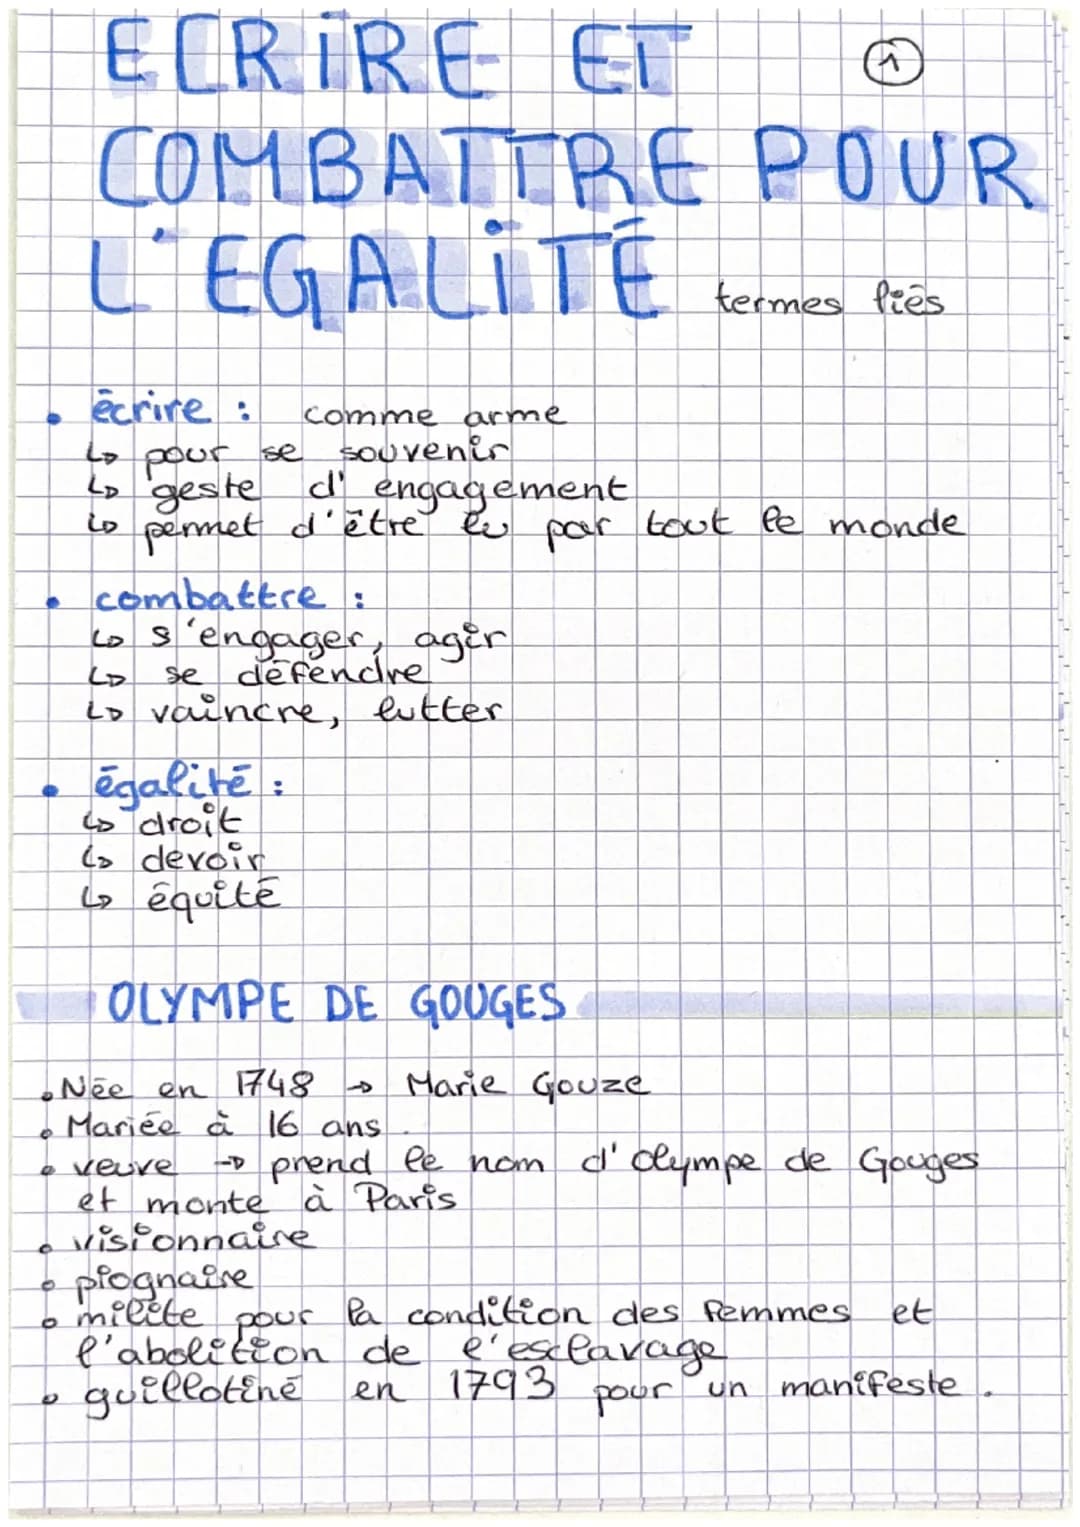 ECRIRE ET
①
COMBATTRE POUR
L'EGALITÉ
termes liés
• écrire : comme arme
↳ pour se souvenir
↳ geste d'engagement
↳ permet d'être lu par tout le monde
• combattre :
↳ s'engager, agir
↳ se défendre
↳ vaincre, lutter
• égalité :
↳ droit
↳ devoir
↳ équité
OLYMPE DE GOUGES
• Née en 1748 → Marie Gouze
• Mariée à 16 ans.
• veuve → prend le nom d'Olympe de Gouges
et monte à Paris
• visionnaire
• piognaire
• milite pour la condition des femmes et
l'abolition de l'esclavage
• guillotiné en 1793 pour un manifeste.